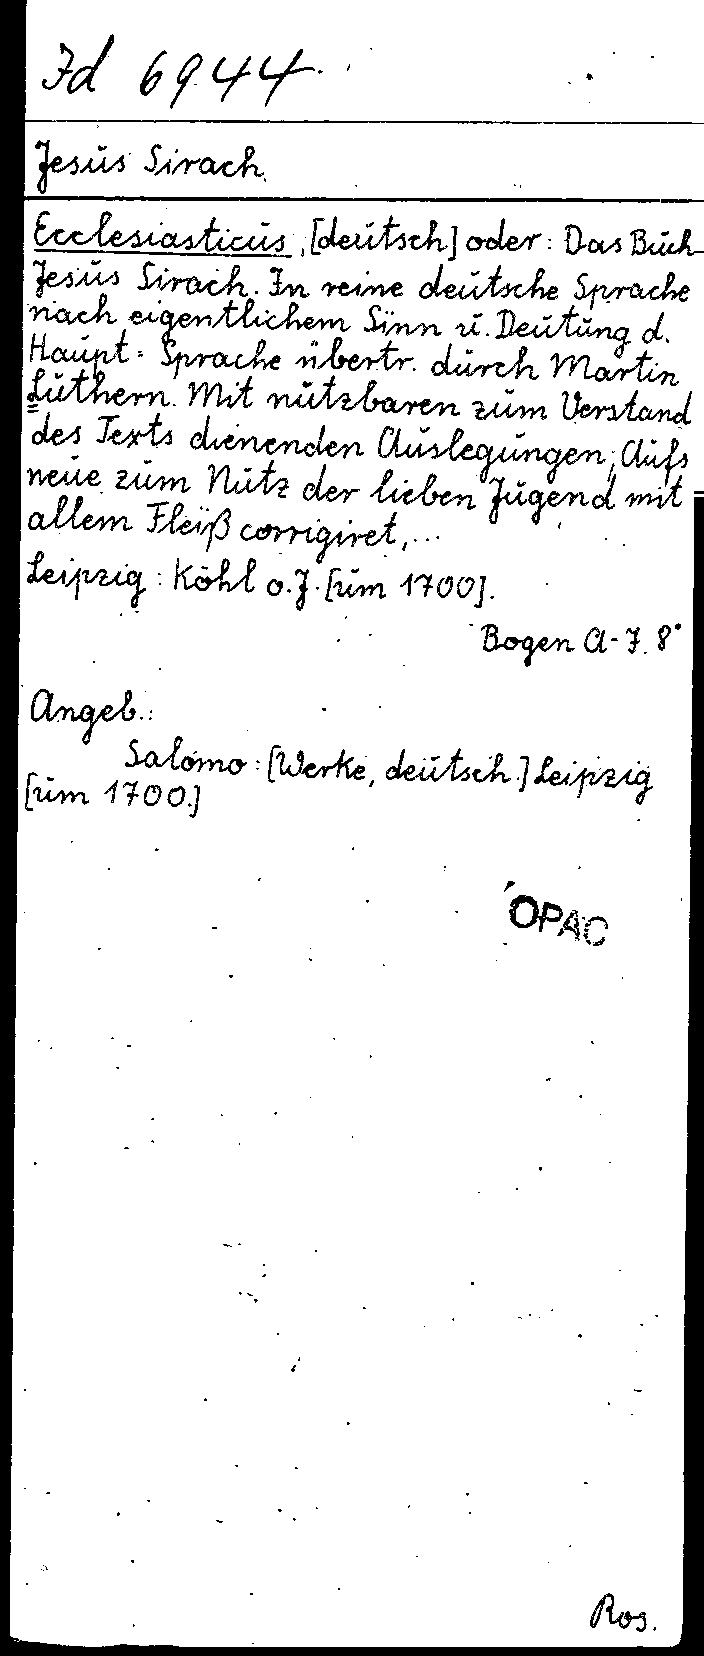 Id 6944
Jesus Sirach
Ecclesiasticus, [deutsch] oder: Das Buch
Jesus Sirach. In reine deutsche Sprache
nach eigentlichem Sinn u. Deutung d.
Haupt= Sprache übertr. durch Martin
Luthern. Mit nutzbaren zum Verstand
des Texts dienenden Auslegungen, Aufs
neue zum Nutz der lieben Jugend mit
allem Fleiß corrigiret,...
Leipzig: Köhl o.J. [um 1700].
Bogen A-J. 8°
Angeb.:
Salomo: [Werke, deutsch.] Leipzig
[um 1700.]
OPAC
Ros.